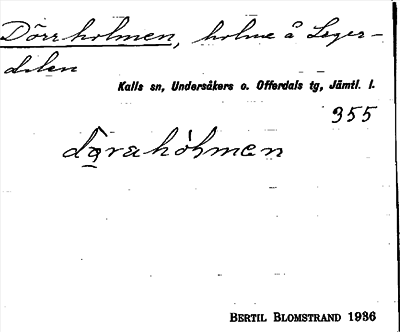 Dörrholmen, holme å Leger-
dilen
Kalls sn, Undersåkers o. Offerdals tg, Jämtl. l.
955
BERTIL BLOMSTRAND 1936